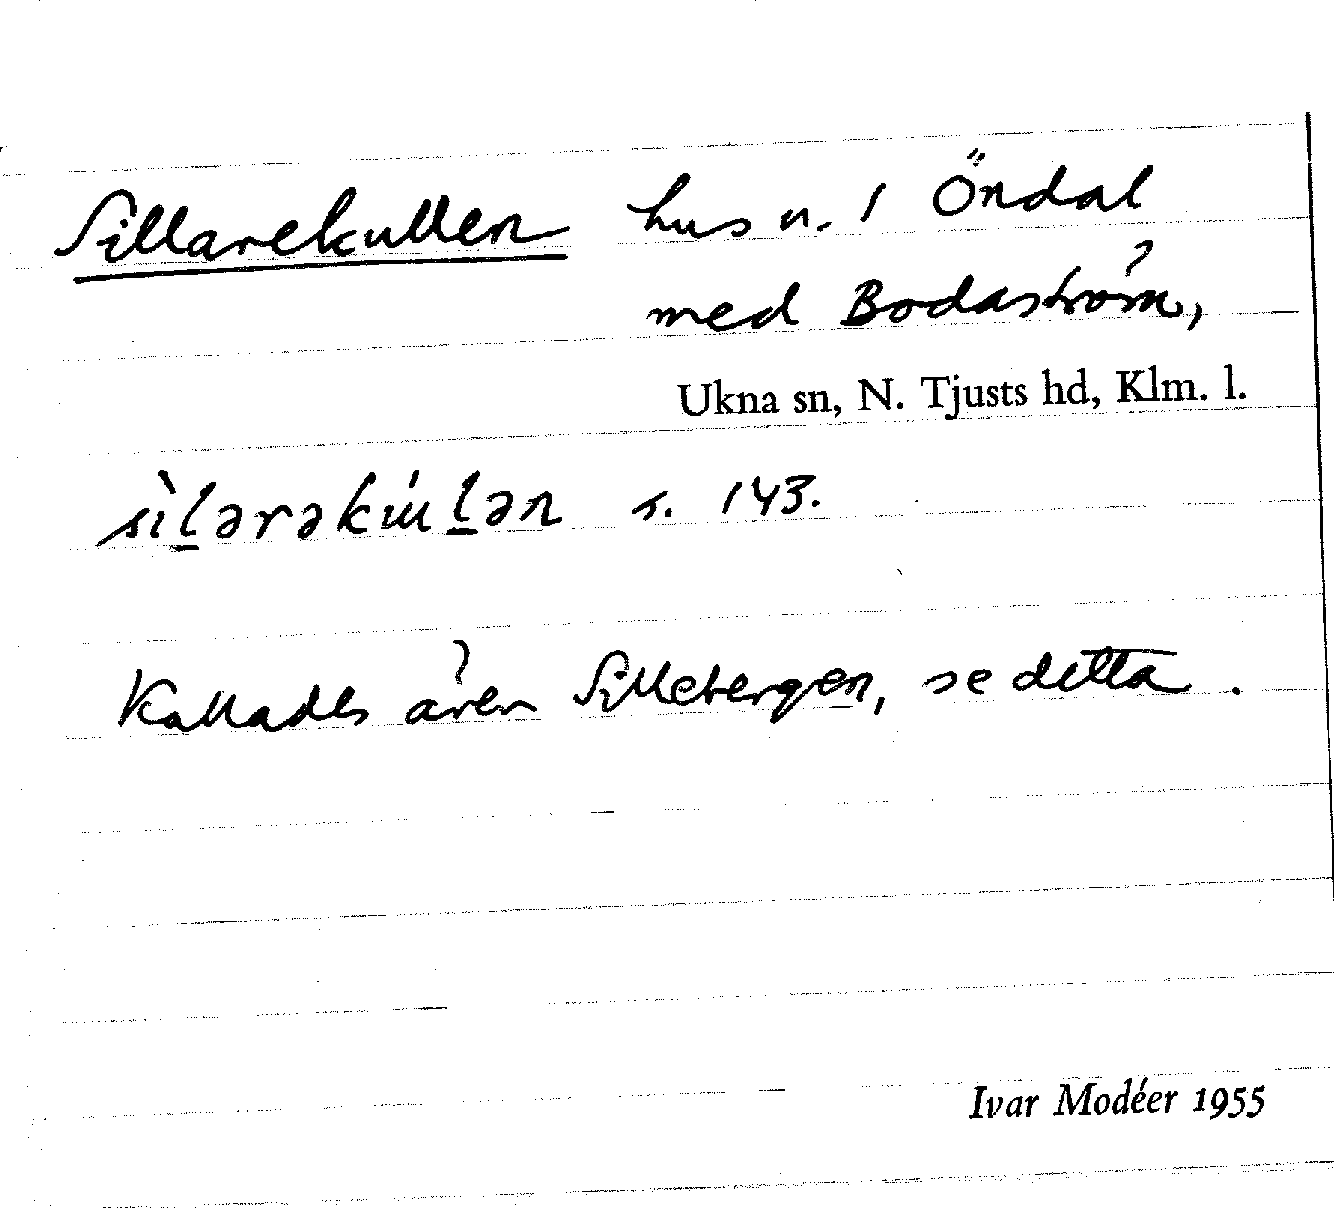 Sillarekullen hus u. 1 Öndal
med Bodaström,
Ukna sn, N. Tjusts hd, Klm. l.
sìl̠ərəkúl̠ən s. 143.
Kallades även Sillebergen, se detta.
Ivar Modéer 1955